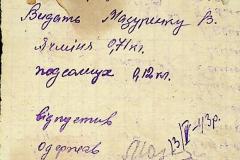 Видать Мазуренку В.
Ячміня 0,71 кг.
подсолнух 0,12 кг.
відпустив
одержав
13/IV-43р.